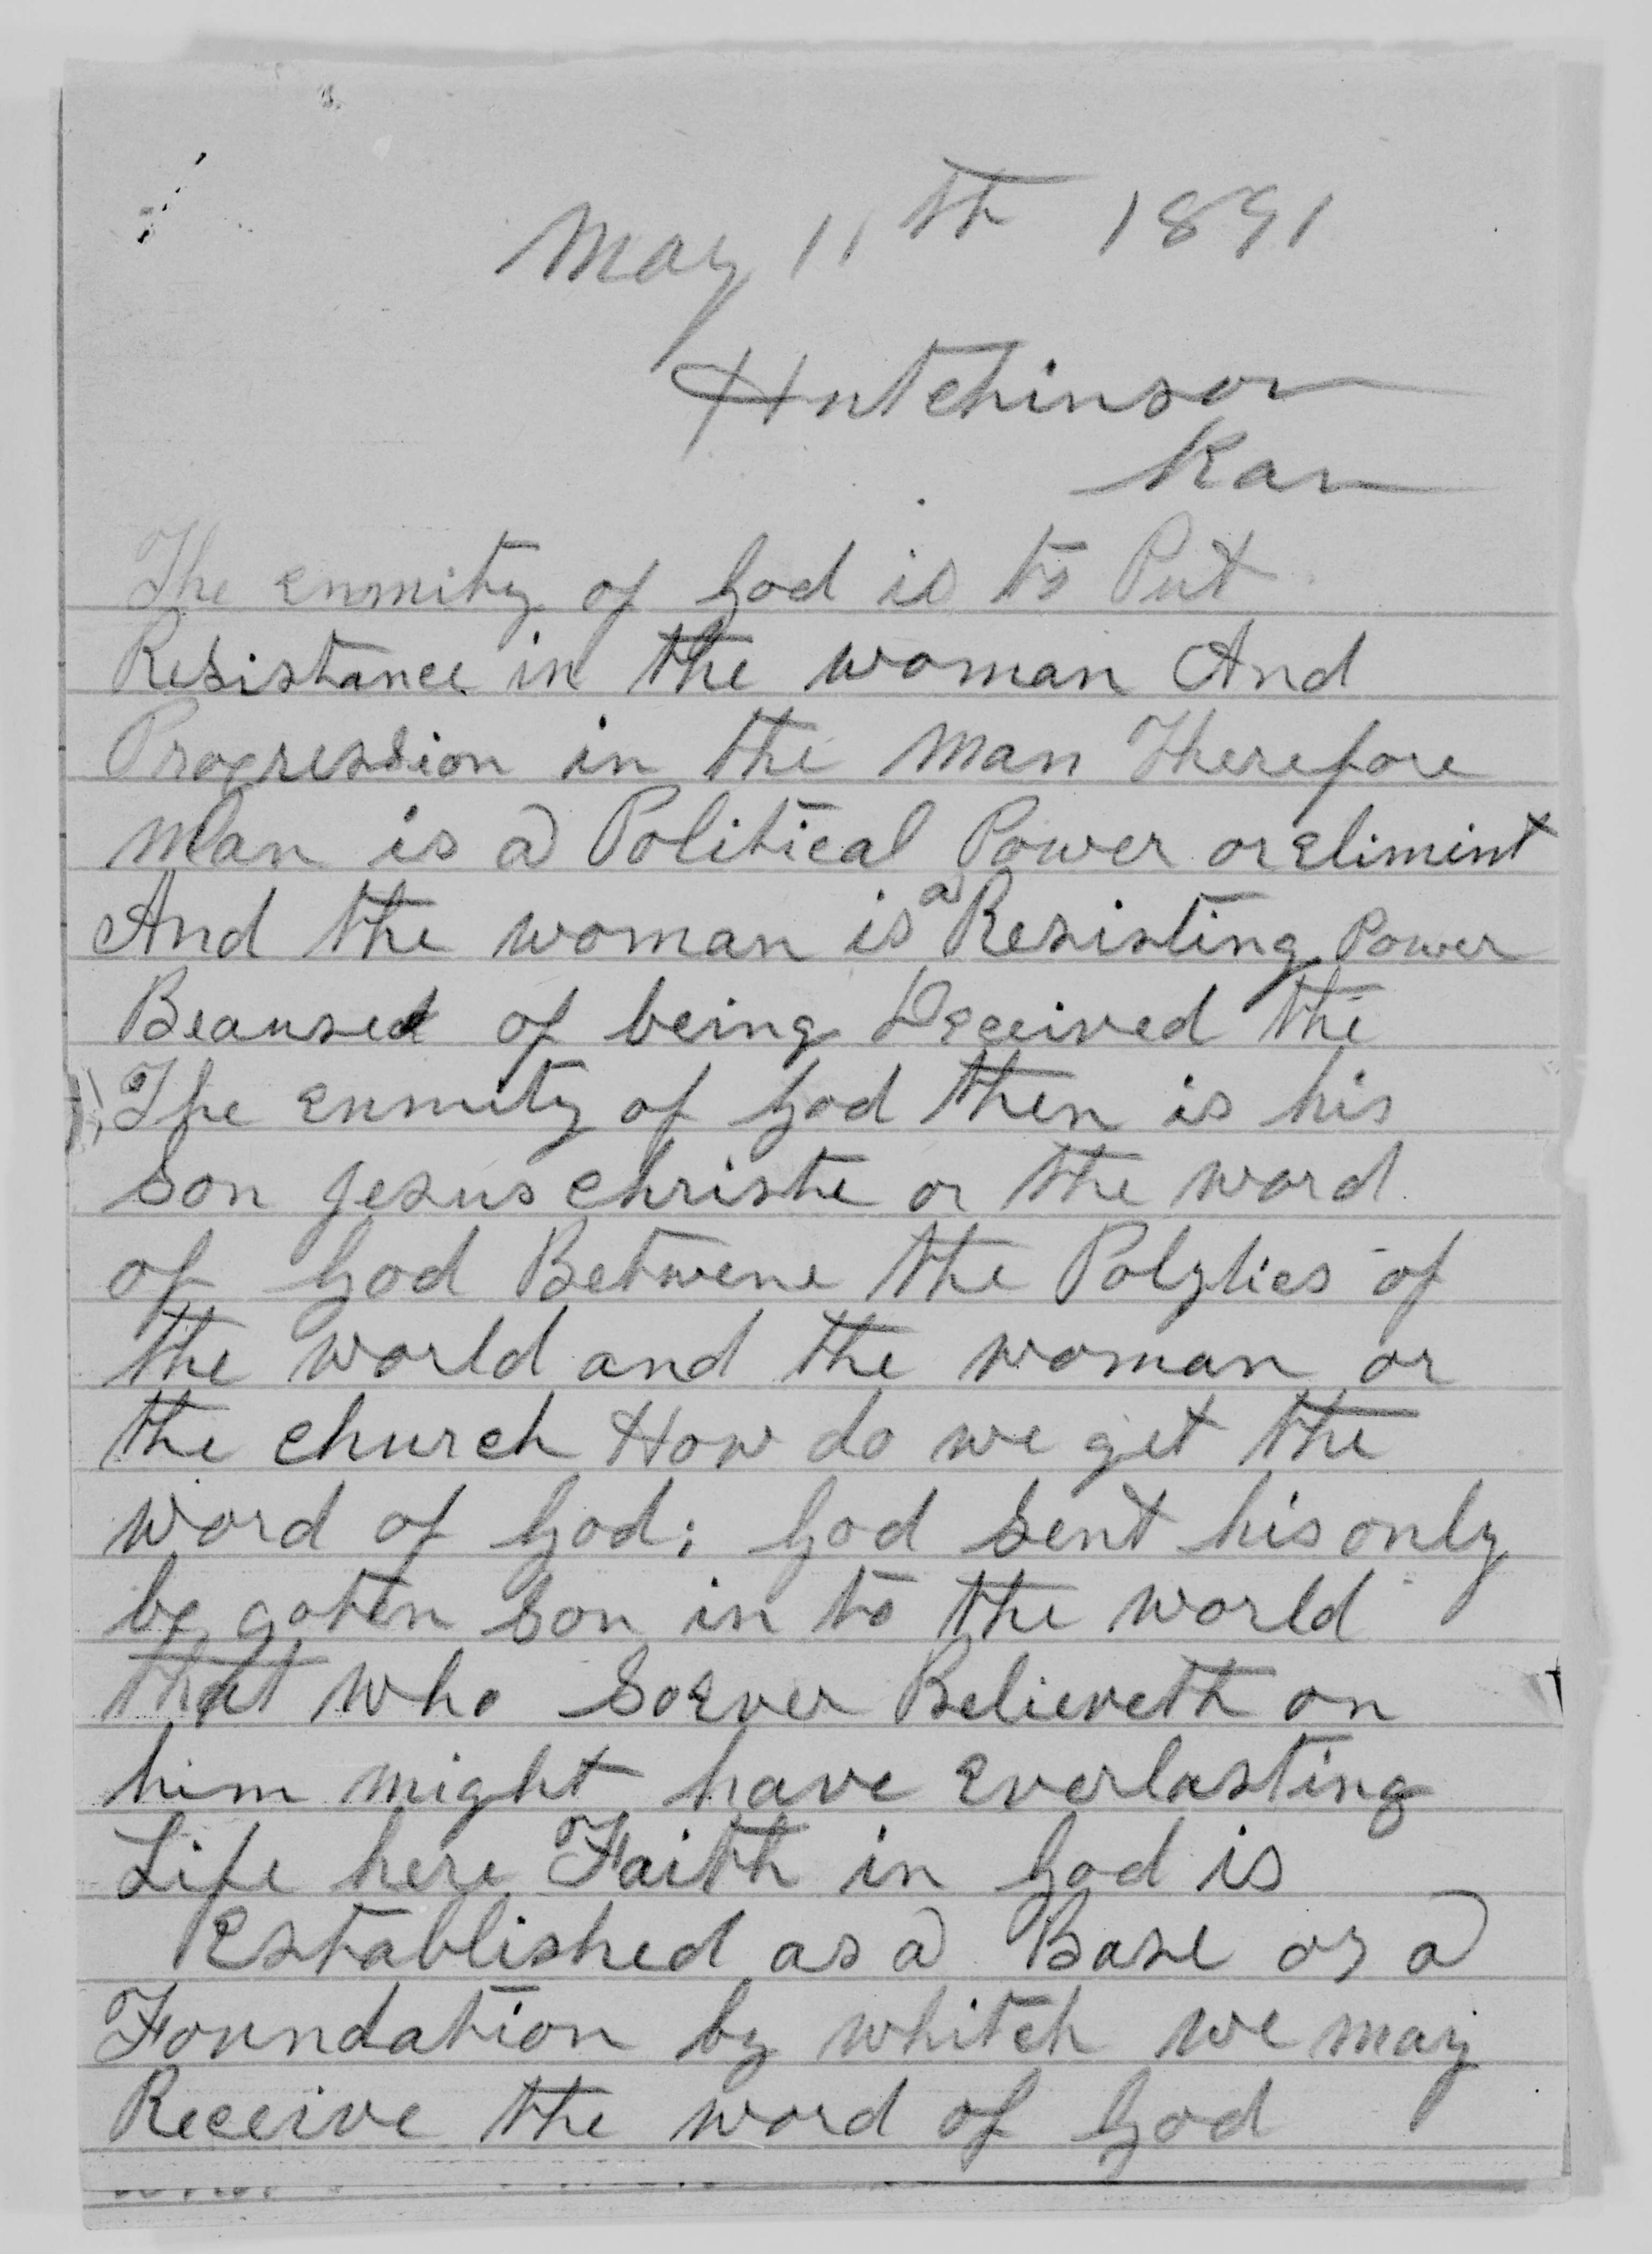 May 11th 1891
Hutchinson
Kan
The enmity of God is to Put
Resistance in the woman And
Progression in the man Therefore
Man is a Political Power or eliment
And the woman is a Resisting Power
Beaused of being Deceived the
The enmity of God then is his
Son Jesus christe or the word
of God Betwene the Polyties of
the world and the woman or
the church How do we get the
word of God; God Sent his only
be goten Son in to the world
that who Soever Believeth on
him might have everlasting
Life here Faith in God is
Established as a Base or a
Foundation by whitch we may
Receive the word of God